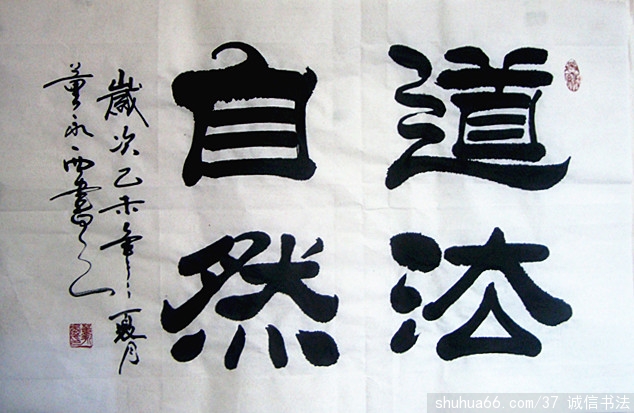 道法
自然
歲次乙未年夏月
董永西書
shuhua66.com/37 诚信书法